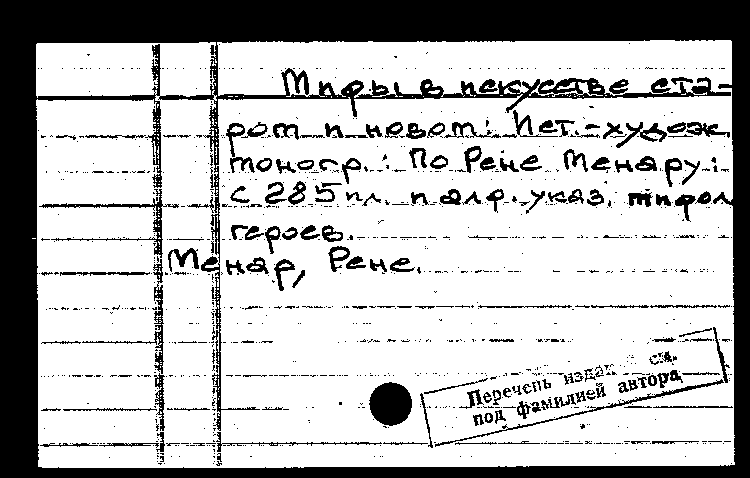 Мифы в искусстве ста-
ром и новом: Ист.-худож.
моногр.: По Рене Менару:
с 285 ил. и алф. указ. мифол
героев.
Менар, Рене.
Перечень издан см.
под фамилией автора